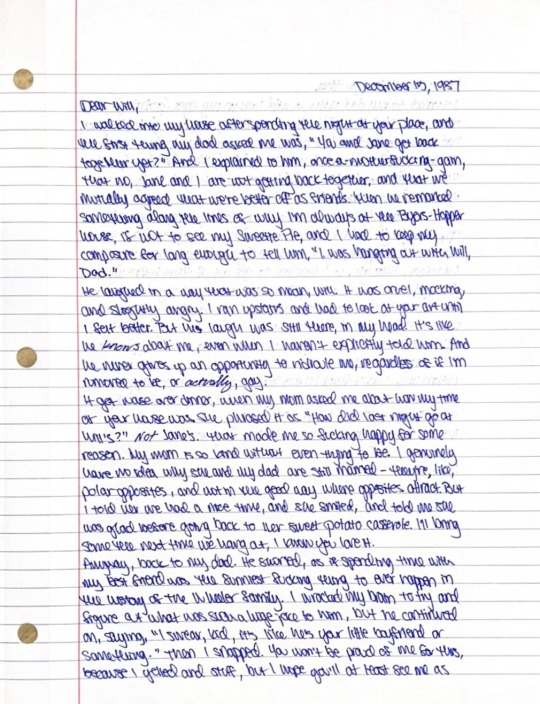 December 15, 1987
Dear Will,
I walked into my house after spending the night at your place, and
the first thing my dad asked me was, "You and Jane get back
together yet?" And I explained to him, once-a-motherfucking-gain,
that no, Jane and I are not getting back together, and that we
mutually agreed that we're better off as friends. Then he remarked
something along the lines of why I'm always at the Byers-Hopper
house, if not to see my Sweetie Pie, and I had to keep my
composure for long enough to tell him, "I was hanging out with Will,
Dad."
He laughed in a way that was so mean, Will. It was cruel, mocking,
and straight angry. I ran upstairs and had to look at your art until
I felt better. But his laugh was still there, in my head. It's like
he knows about me, even when I haven't explicitly told him. And
he never gives up an opportunity to ridicule me, regardless of if I'm
rumored to be, or actually, gay.
It got worse over dinner, when my mom asked me about how my time
at your house was. She phrased it as "How did last night go at
Will's?" Not Jane's. That made me so fucking happy for some
reason. My mom is so kind without even trying to be. I genuinely
have no idea why she and my dad are still married - they're, like,
polar opposites, and not in the good way where opposites attract. But
I told her we had a nice time, and she smiled, and told me she
was glad before going back to her sweet potato casserole. I'll bring
some the next time we hang out, I know you love it.
Anyway, back to my dad. He snorted, as if spending time with
my best friend was the funniest fucking thing to ever happen in
the history of the Wheeler family. I wracked my brain to try and
figure out what was such a huge joke to him, but he continued
on, saying, "I swear, kid, it's like he's your little boyfriend or
something." Then I snapped. You won't be proud of me for this,
because I yelled and stuff, but I hope you'll at least see me as